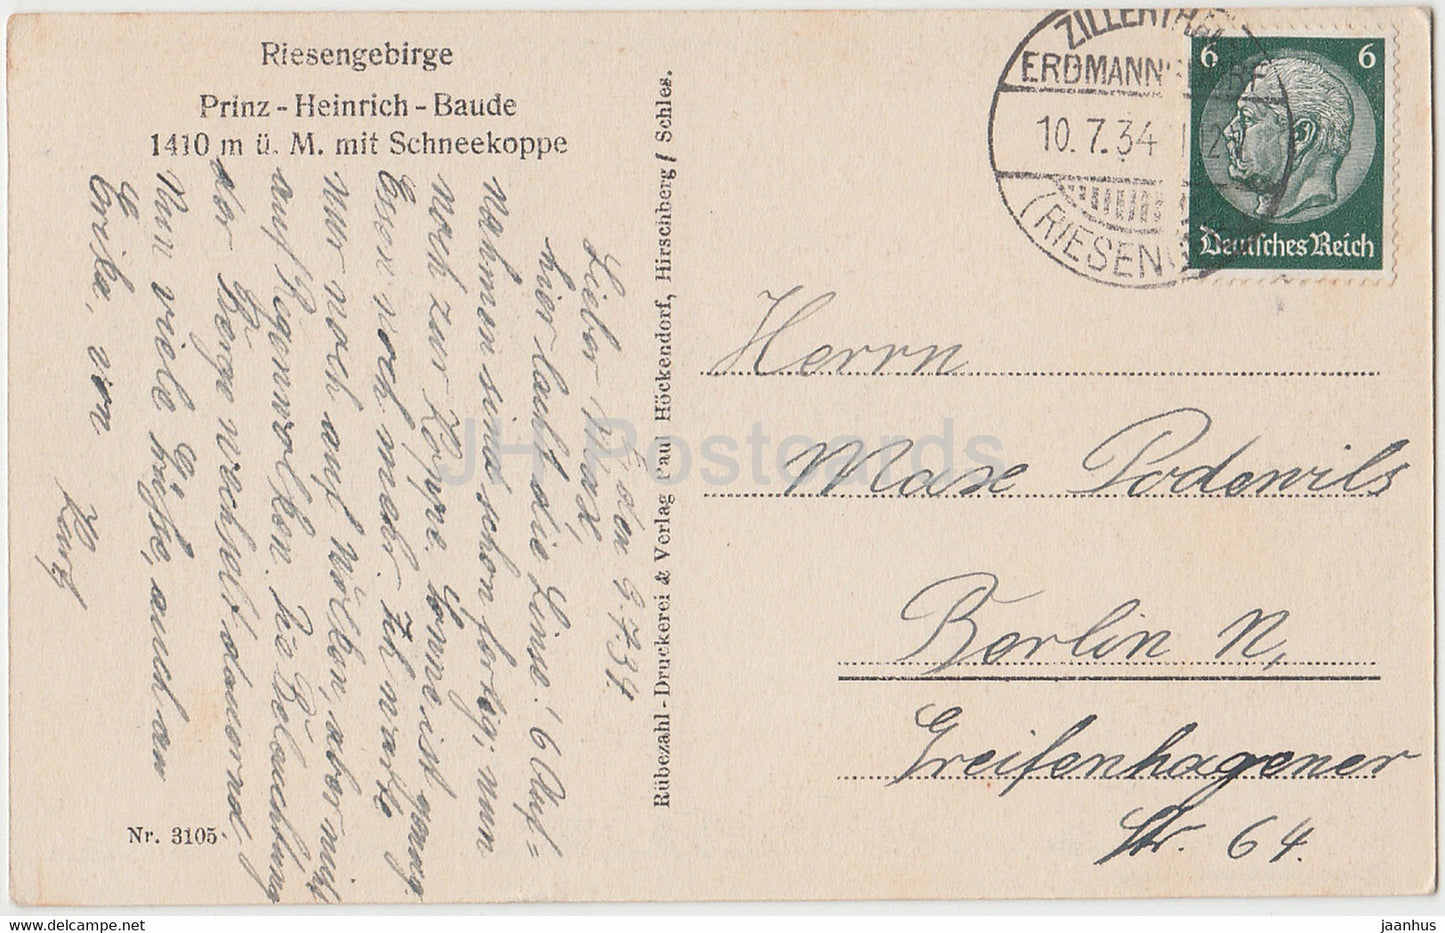 Riesengebirge
Prinz-Heinrich-Baude
1410 m ü. M. mit Schneekoppe
d. den 9.7.34.
Lieber Max,
hier laust die Linse! 6 Auf-
nahmen sind schon fertig; nun
noch zur Koppe. Sonne ist genug
Essen noch mehr. Ich warte
nur noch auf Wolken, aber nicht
auf Regenwolken. Die Beleuchtung
der Berge wechselt dauernd.
Nun viele Grüße, auch an
Erika, von
Kurt
Nr. 3105.
Rübezahl-Druckerei & Verlag Paul Höckendorf, Hirschberg/Schles.
ZILLERTHAL
ERDMANNSDORF
10.7.34
(RIESENG
6 6
Deutsches Reich
Herrn
Max Podewils
Berlin N,
Greifenhagener
Str. 64.
JH Postcards
jaanhus